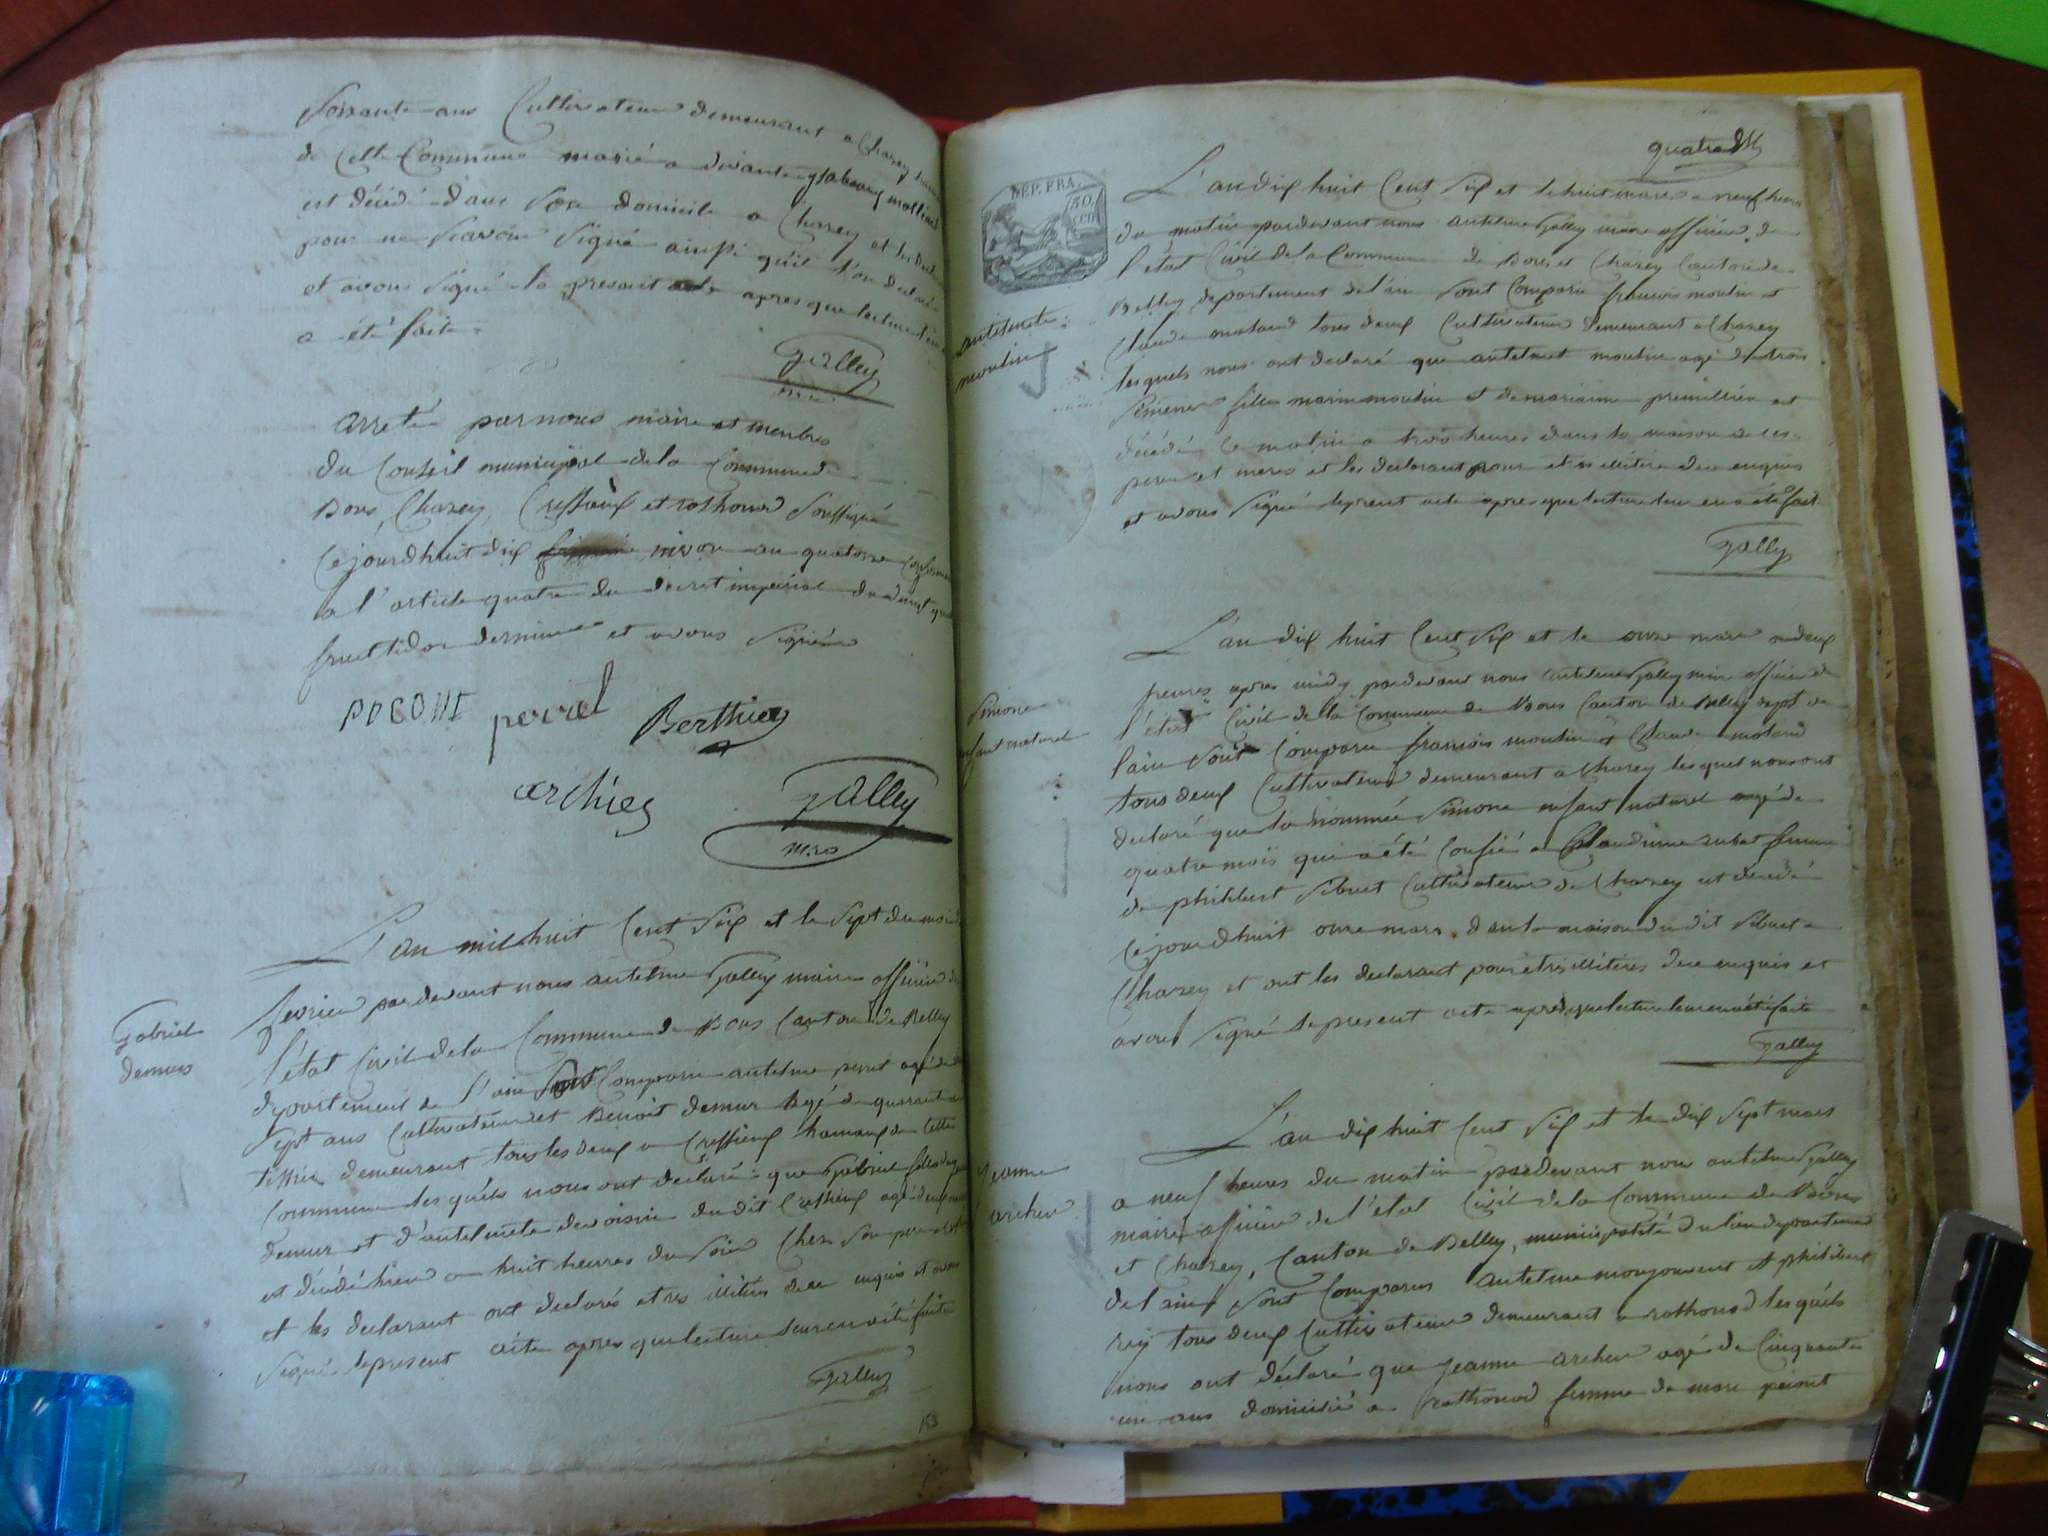 Soixante ans Cultivateur demeurant a Charey
de Cette Commune marié a
est décédé dans Son domicile a Charey et les
pour ne Scavoir Signé ainsi qu'il l'on declaré
et avons Signé le present acte apres que lecture
a été faite
Galley
arreté par nous maire et menbres
du Conseil municipal de la Commune de
Bons, Charey, Cressieux et rothonod Soussigné
Ce jourdhuit dix nivose an quatorze
a l'article quatre du decret imperial du vingt
fructidor dernier et avons Signé
perret
Berthier
archier
galley
L'an mil huit Cent Six et le Sept du mois
Gabriel
demur
fevrier par devant nous antelme Galley maire officier de
l'état Civil de la Commune de Bons Canton de Belley
departement de l'ain Sont Comparu antelme perret agé de
Sept ans Cultivateur et Benoit demur agé de quarante
demeurant tous les deux a Cressieux hameau de Cette
Commune lesquels nous ont declaré que Gabriel fils de
demur et d'antelmete devoisin du dit Cressieux agé
est décédé hier a huit heures du Soir Chez Son pere
et les declarant ont declarés etres illitéres de ce enquis et avons
Signé le present acte apres que lecture leur en a été faite
Galley
153
quatre
DÉP. FRA.
50
CEN
L'an dix huit Cent Six et le huit mars a neuf heures
du matin pardevant nous antelme Galley maire officier de
l'état Civil de la Commune de Bons et Charey Canton de
Belley departement de l'ain Sont Comparu francois moulin et
antelmete
moulin
Claude molard tous deux Cultivateur demeurant a Charey
lesquels nous ont declaré que antelmet moulin agé de trois
Semene fille marin moulin et de mariane est
décédé Ce matin a trois heures dans la maison de ces
pere et mere et les declarant pour etres illitére de ce enquis
et avons Signé le present acte apres que lecture leur en a été fait
Galley
L'an dix huit Cent Six et le onze mars a deux
heures apres midy pardevant nous antelme Galley maire officier de
Simone
enfant naturel
l'état Civil de la Commune de Bons Canton de Belley dept de
l'ain Sont Comparu francois moulin et Claude molard
tous deux Cultivateur demeurant a Charey lesquel nous ont
declaré que la nommée Simone enfant naturel agé de
quatre mois qui a été Confié a Claudine rubat femme
de philibert Sibuet Cultivateur de Charey est décédé
Ce jourdhuit onze mars dans la maison du dit Sibuet a
Charey et ont les declarant pour etres illitéres de ce enquis et
avons Signé le present acte apres que lecture leur en a été faite
Galley
L'an dix huit Cent Six et le dix Sept mars
Jeanne
archer
a neuf heures du matin pardevant nous antelme Galley
maire officier de l'état Civil de la Commune de Bons
et Charey, Canton de Belley, municipalité du lieu departement
de l'ain Sont Comparus antelme monjouvent et philibert
rey tous deux Cultivateur demeurant a rothonod lesquels
nous ont déclaré que Jeanne archer agé de Cinquante
un ans domicilié a rothonod femme de marc